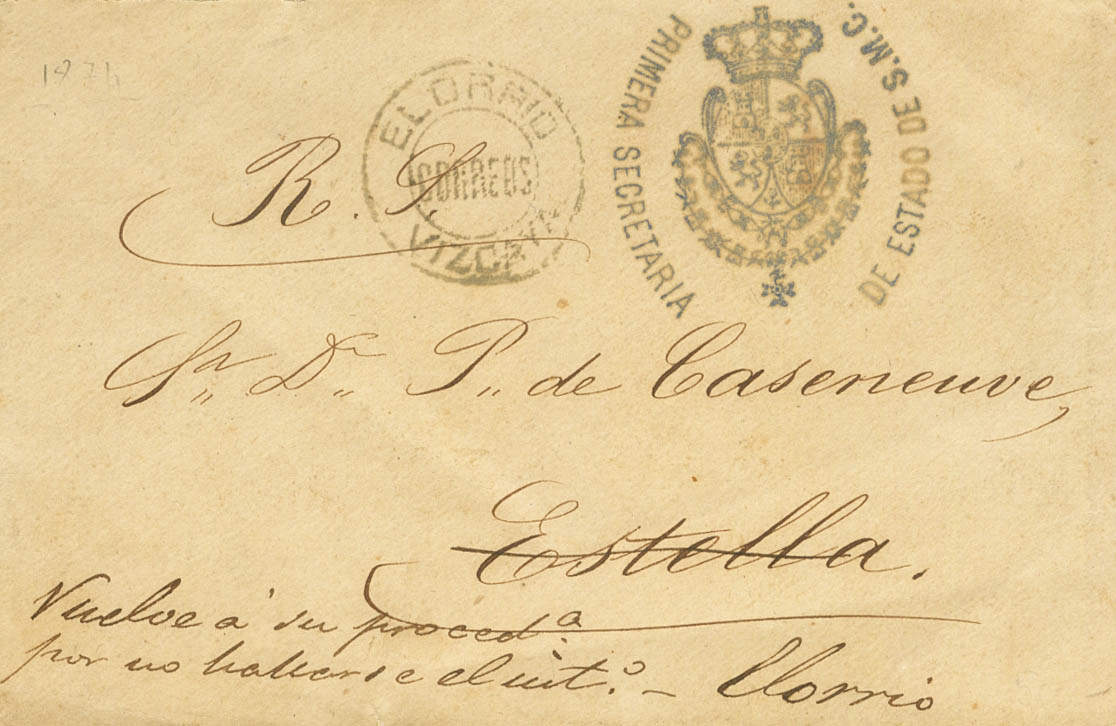 1874
ELORRIO
CORREOS
VIZCAYA
PRIMERA SECRETARIA
DE ESTADO DE S.M.C.
R. S.
Sr,, Dn,, P,, de Caseneuve,
Estella.
Vuelve á su proced.a
por no hallarse el int.o – Elorrio